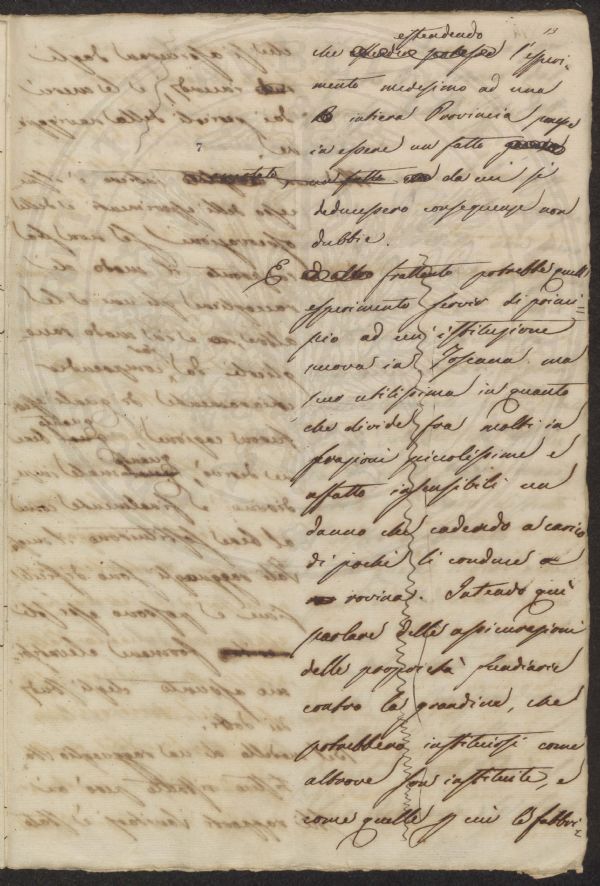 13
estendendo
che l'esperi-
mento medesimo ad una
intiera Provincia
in essere un fatto
un fatto da cui si
deducessero conseguenze non
dubbie.
E frattanto potrebbe quell'
esperimento servir di princi-
pio ad un'istituzione
nuova in Toscana ma
pur utilissima in quanto
che divide fra molti in
frazioni piccolissime e
affatto insensibili un
danno che cadendo a carico
di pochi li conduce a
rovina. Intendo quì
parlare delle assicurazioni
delle proprietà fundiarie
contro la grandine, che
potrebbero instituirsi come
altrove son instituite, e
come quelle p cui le fabbri-